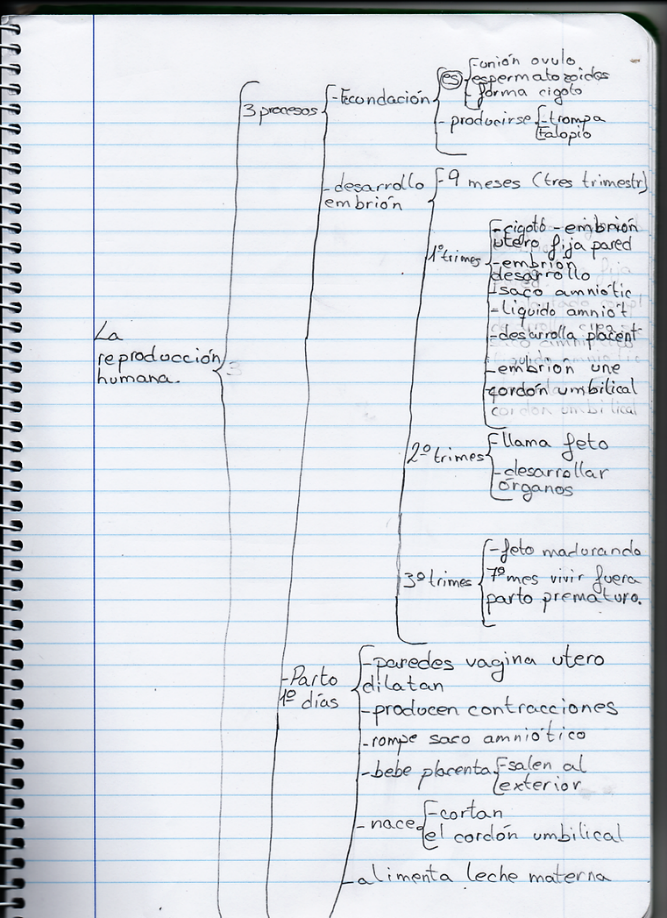 La
reproducción
humana.
3 procesos
-Fecundación
es
-unión ovulo
espermatozoides
-forma cigoto
- producirse
-trompa
falopio
-desarrollo
embrión
-9 meses (tres trimestr)
1º trimes
-cigoto - embrión
utero fija pared
-embrión
desarrollo
-saco amniótic
-liquido amniót
-desarrolla placent
-embrion une
cordón umbilical
2º trimes
-llama feto
-desarrollar
órganos
3º trimes
-feto madurando
7º mes vivir fuera
parto prematuro.
-Parto
1º días
-paredes vagina utero
dilatan
-producen contracciones
-rompe saco amniótico
-bebe placenta
-salen al
exterior
-nace
-cortan
el cordón umbilical
-alimenta leche materna